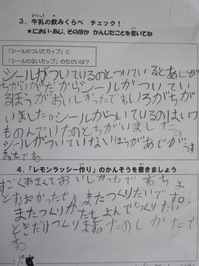 3．牛乳の飲みくらべ チェック！
★におい・あじ、そのほか かんじたことを書いてね
「シールのついたカップ」と
「シールのないカップ」のちがいは？
シールがついているのとついているとあじが
ちががだからシールがついてい
るほうがおいしかったでもいろがちが
いました。シールがついているのはいつも
ものんでいたのとちがいました。
シールがついていないほうがあじがうす
4．「レモンラッシー作り」のかんそうを書きましょう
すごくあまくておいしかったで
とおかったで またつくりたいです
またつくったらよんでつくりたい
ときどきつくり またのしかたで